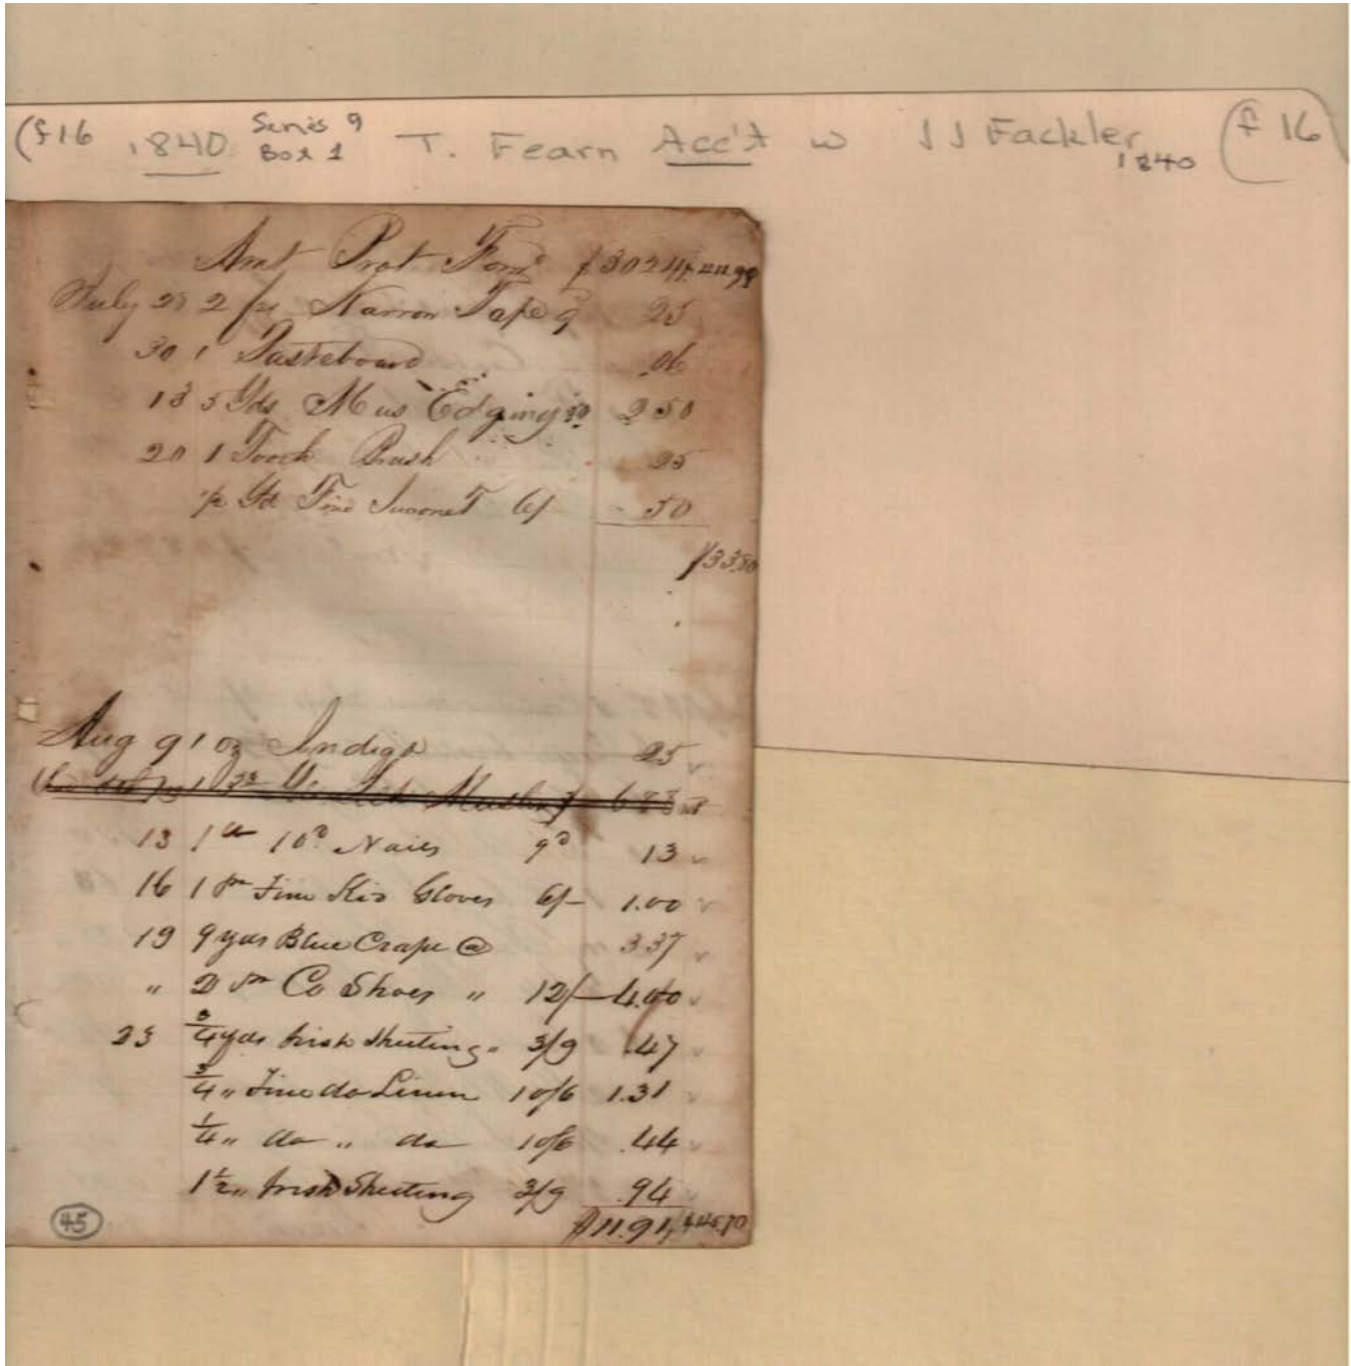 (f 16 1840 Series 9 Box 1 T. Fearn Acc't w J J Fackler 1840 (f 16
Amt Brot Forwd $30 24
July 28 2 ps Narrow Tape 25
30 1 Pasteboard .06
13 5 Yds Mus Edging 50 2 50
20 1 Tooth Brush 25
1/2 Yd Fine Swonet 6/ 50
$33.80
Aug 9 1 oz Indigo 25
Muslin
13 1 lb 10d Nails 9d 13
16 1 pr Fine Kid Gloves 6/- 1.00
19 9 yds Blue Crape @ 3 37
" 2 pr Co Shoes " 12/- 4.00
23 3/4 yds Irish Sheeting 3/9 .47
3/4 " Fine do Linen 10/6 1.31
1/4 " do " do 10/6 .44
1 1/2 " Irish Sheeting 3/9 .94
$11.91 $45.70
45